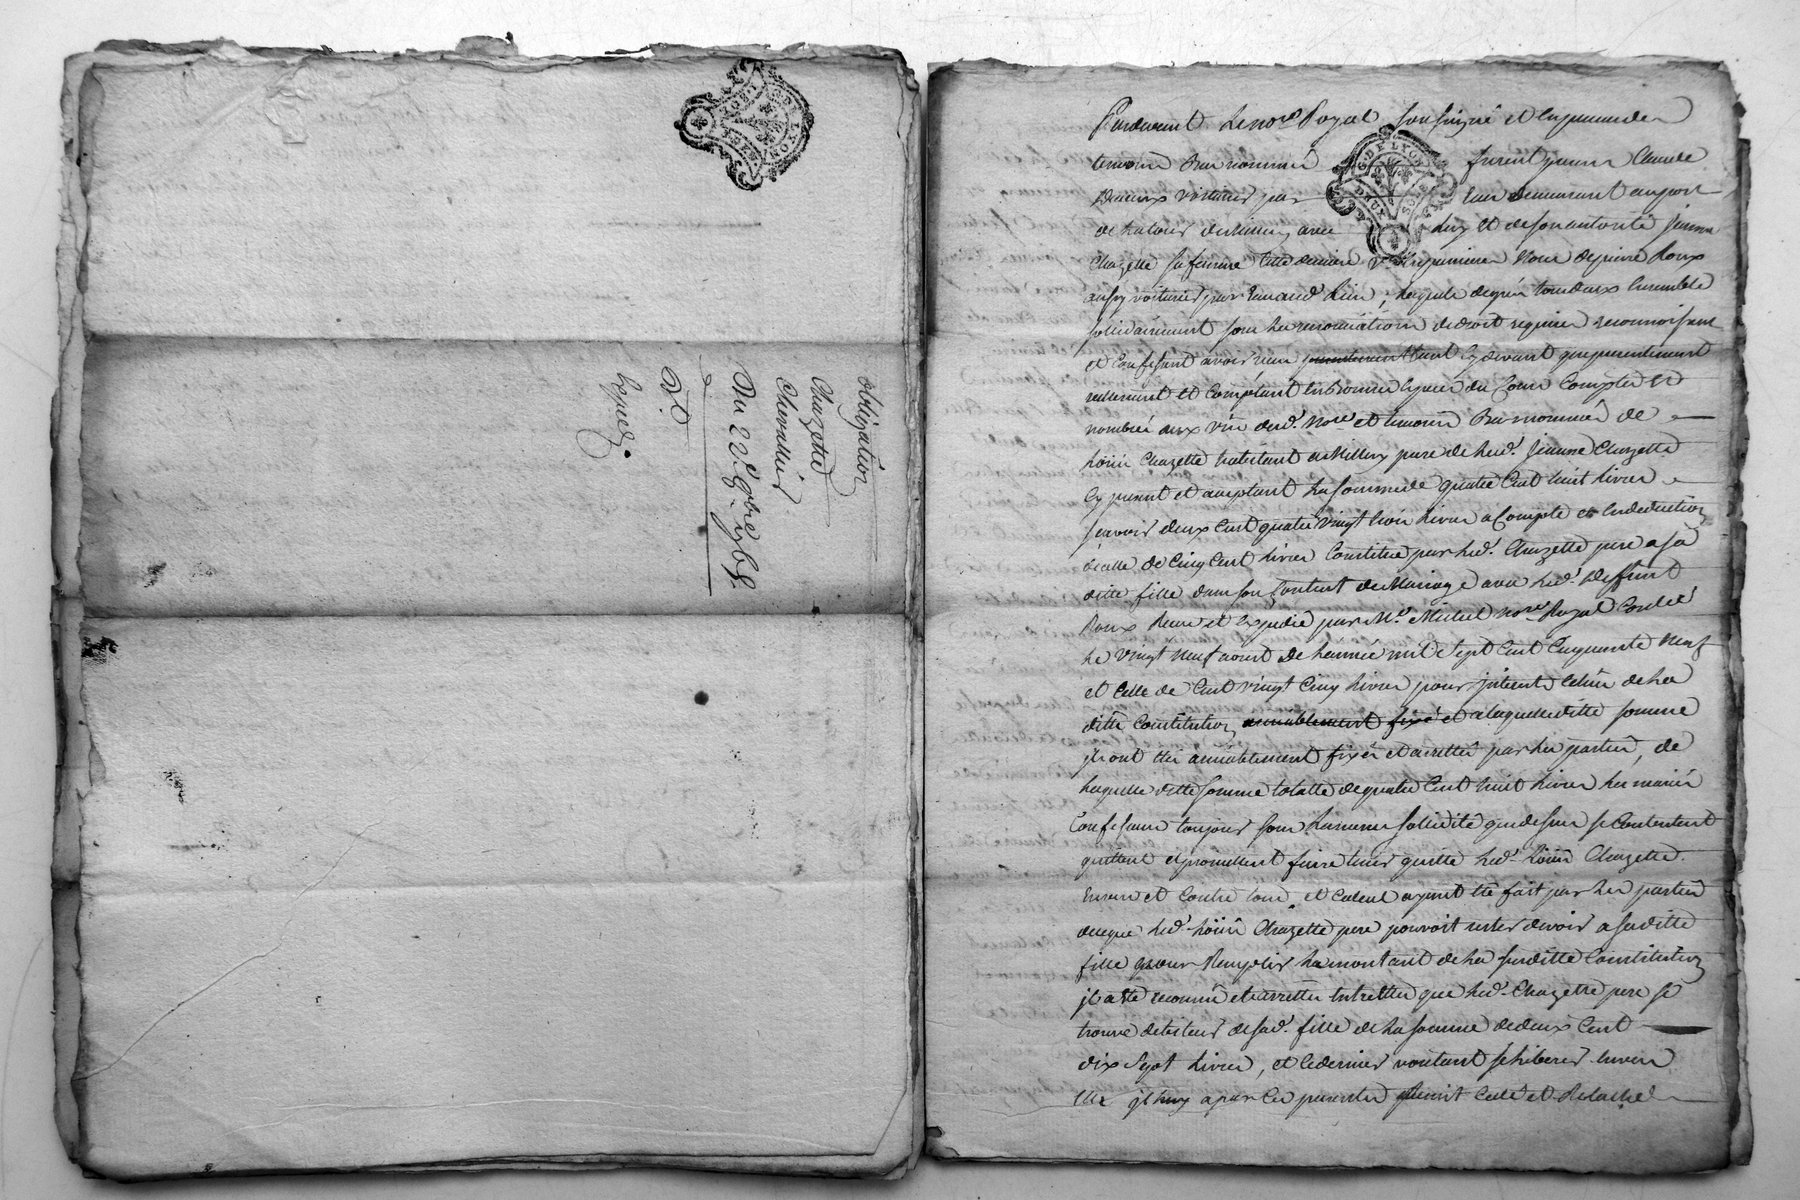 obligation
Chazette
Chevallier
Du 22e 9bre 1768
exped.
G. DE LYON
DEUX SOLS
Pardevant le no.re Royal soussigné et en presence des
temoins bas nommés furent presens Claude
voiturier par eau demeurant au port
de avec luy et de son autorité Jeanne
Chazette sa femme cette derniere en premieres Nopces de pierre Roux
aussy voiturier par eau aud. lieu, lesquels de gré tous deux Ensemble
solidairement sous les renonciations de droit requises reconnoissent
et Confessent avoir reçu tant cy devant que presentement
reellement et Comptant en bonnes especes du Cours Comptées et
nombrées aux vües dud. No.re et temoins Bas nommés de
Chazette habitant de Millery pere de lad. Jeanne Chazette
cy present et acceptant la somme de quatre Cent huit livres
scavoir deux Cent quatre vingt trois livres a Compte et en deduction
de celle de Cinq Cent livres Constituée par led. Chazette pere a sa
ditte fille dans son Contrat de Mariage avec led. deffunt
Roux Reçu et Expedié par M.e Michel no.re Royal
le vingt neuf aoust de l'année mil sept Cent Cinquante neuf
et Celle de Cent vingt Cinq livres pour interets de la
ditte Constitution amiablement fixé et a laquelle ditte somme
ils ont été amiablement fixés et arrettés par les parties, de
laquelle ditte somme totalle de quatre Cent huit livres les mariés
toujours sous la meme solidité que dessus se Contentent
quittent et promettent faire tenir quitte led. Chazette
Envers et Contre tous, et Calcul ayant été fait par les parties
de ce que led. Chazette pere pouvoit rester devoir a sa ditte
fille pour Remplir le montant de la susditte Constitution
il a été reconnu et arretté entre elles que led. Chazette pere se
trouve debiteur de sad. fille de la somme de deux Cent
dix sept livres, et ce dernier voulant se liberer envers
elle par ces presentes Cedé et Relaché